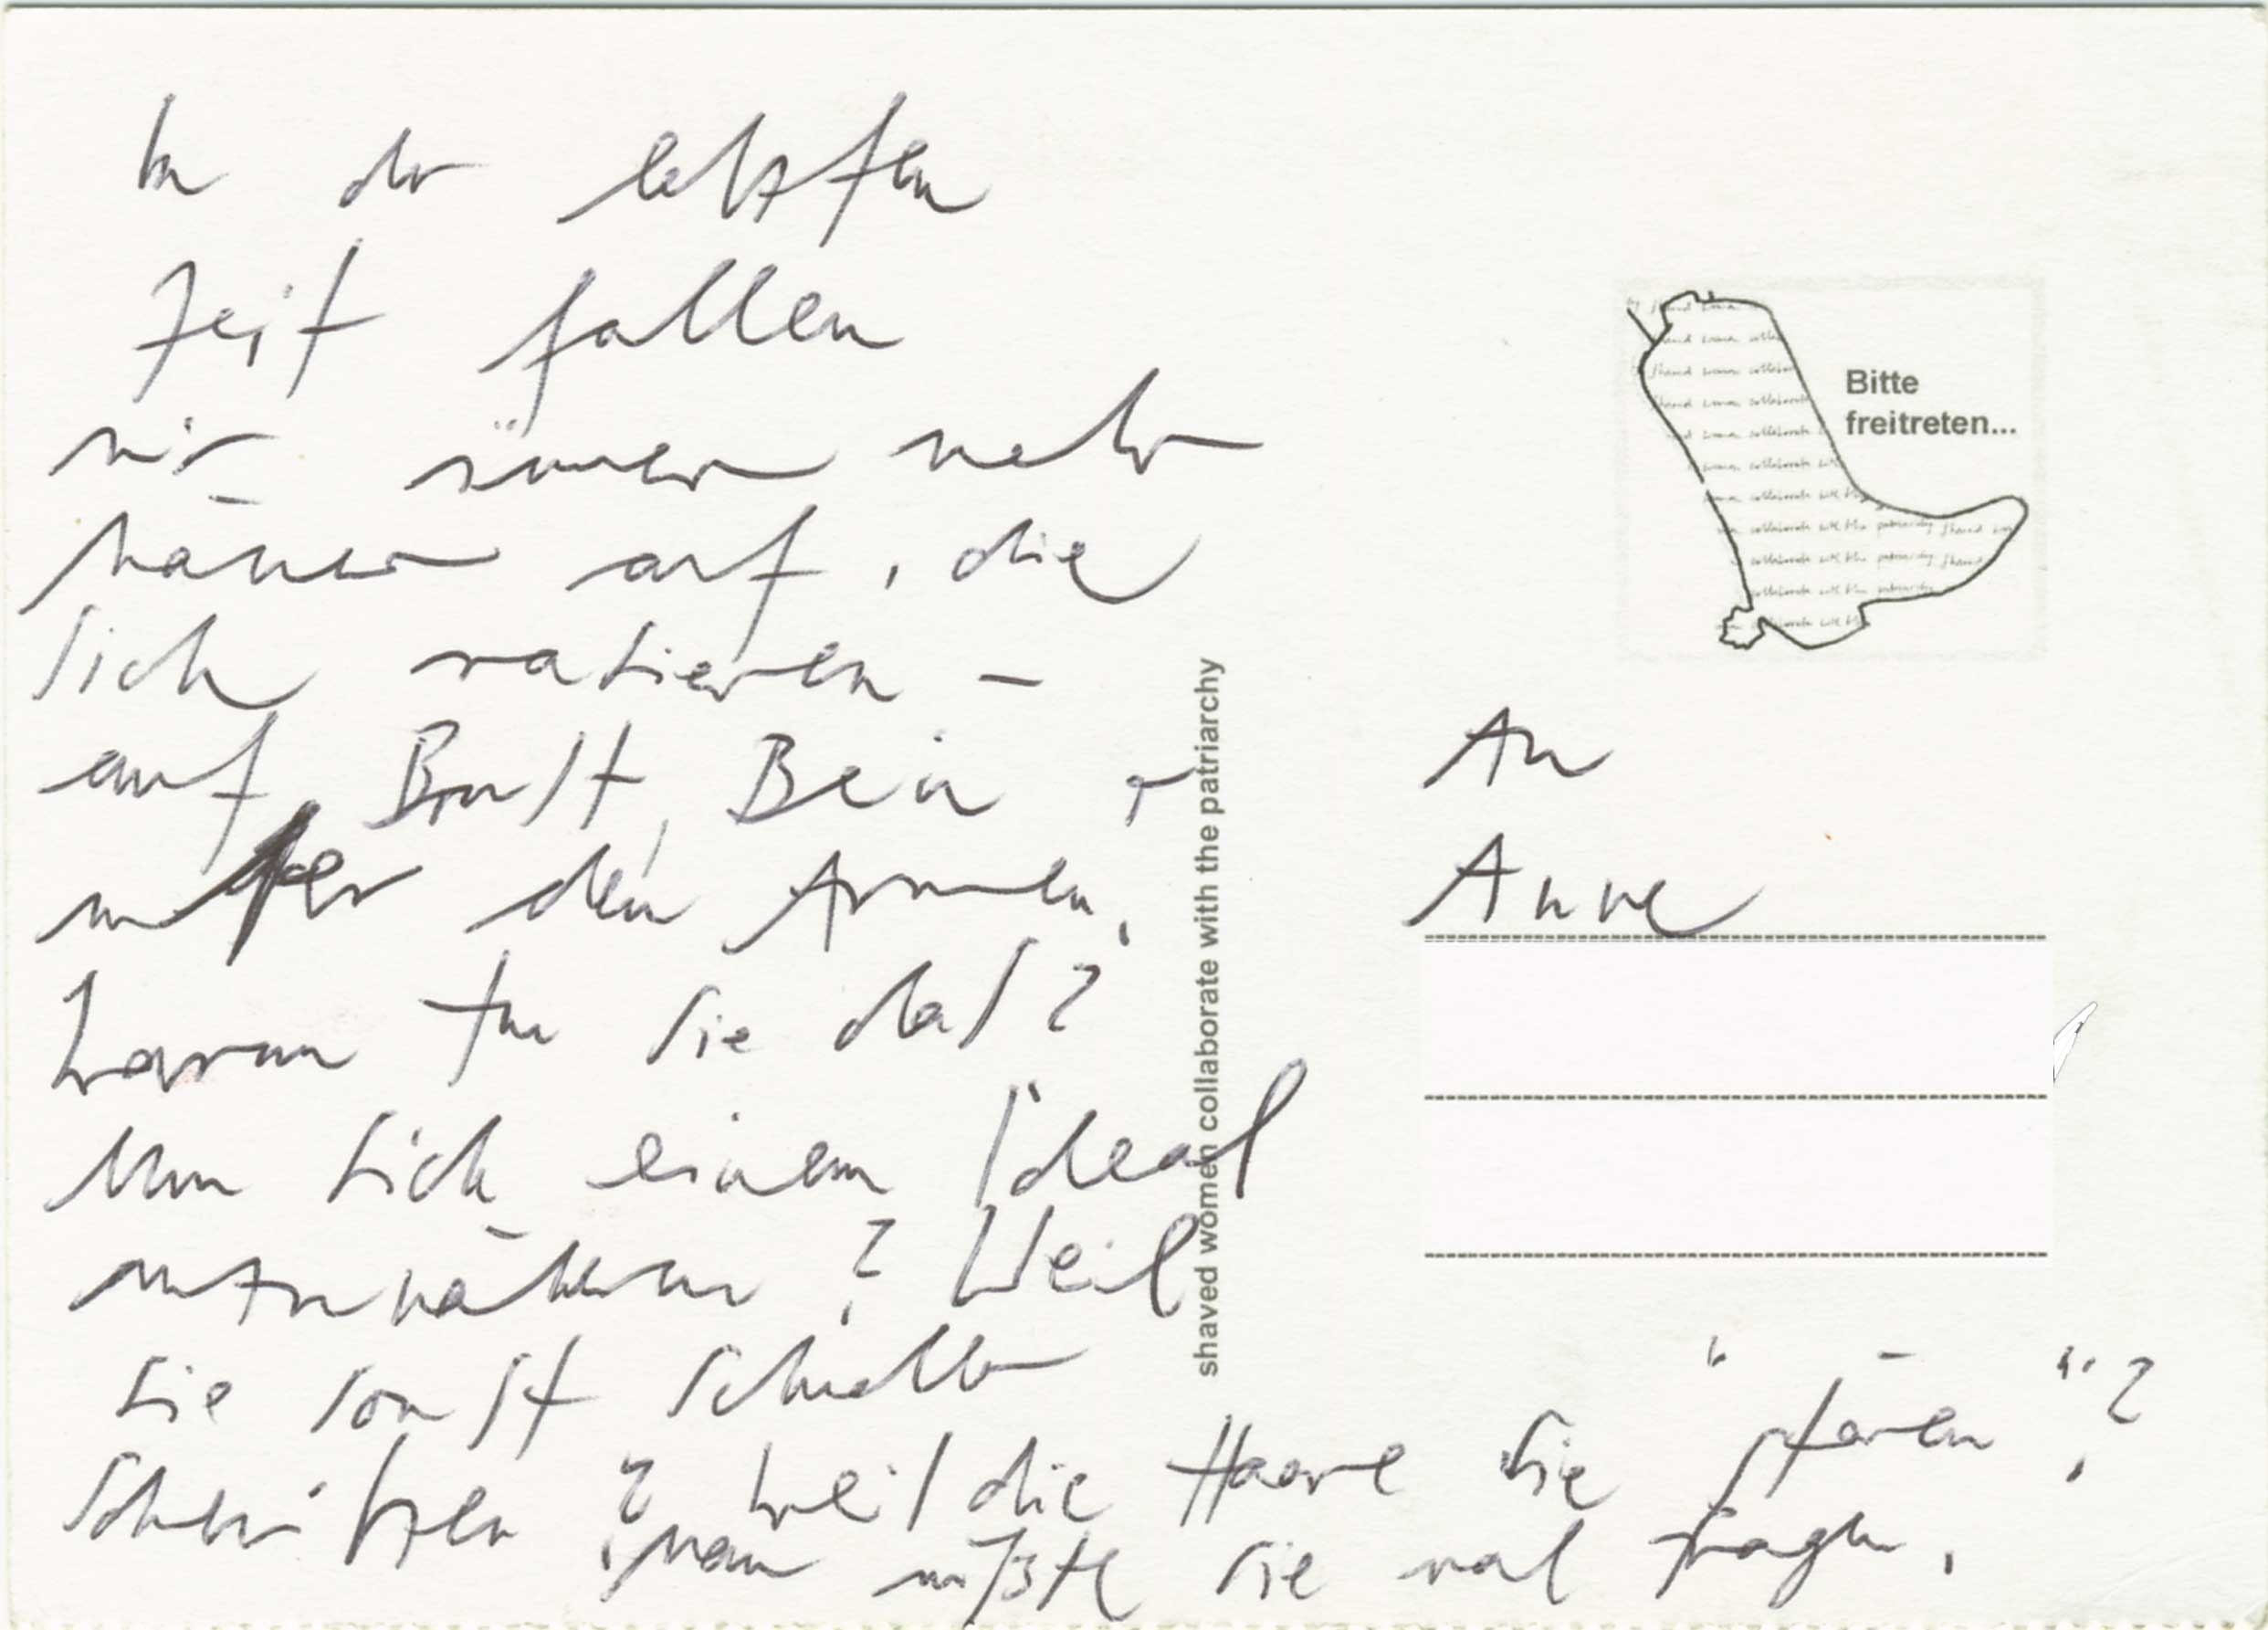 In der letzten
Zeit fallen
mir immer mehr
Männer auf, die
sich rasieren –
auf Brust, Bein +
unter den Armen.
Warum tun sie das?
Um sich einem Ideal
anzunähern? Weil
sie sonst schneller
schwitzen? Weil die Haare sie "stören"?
Man müßte sie mal fragen.
shaved women collaborate with the patriarchy
Bitte
freitreten...
An
Anne